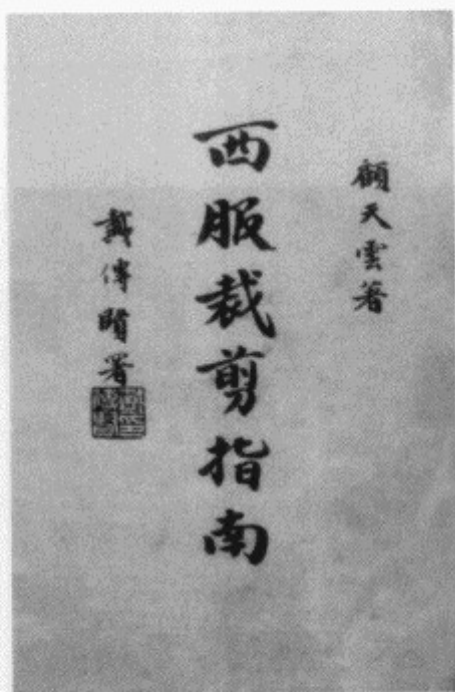 顧天雲著
西服裁剪指南
戴傳賢署